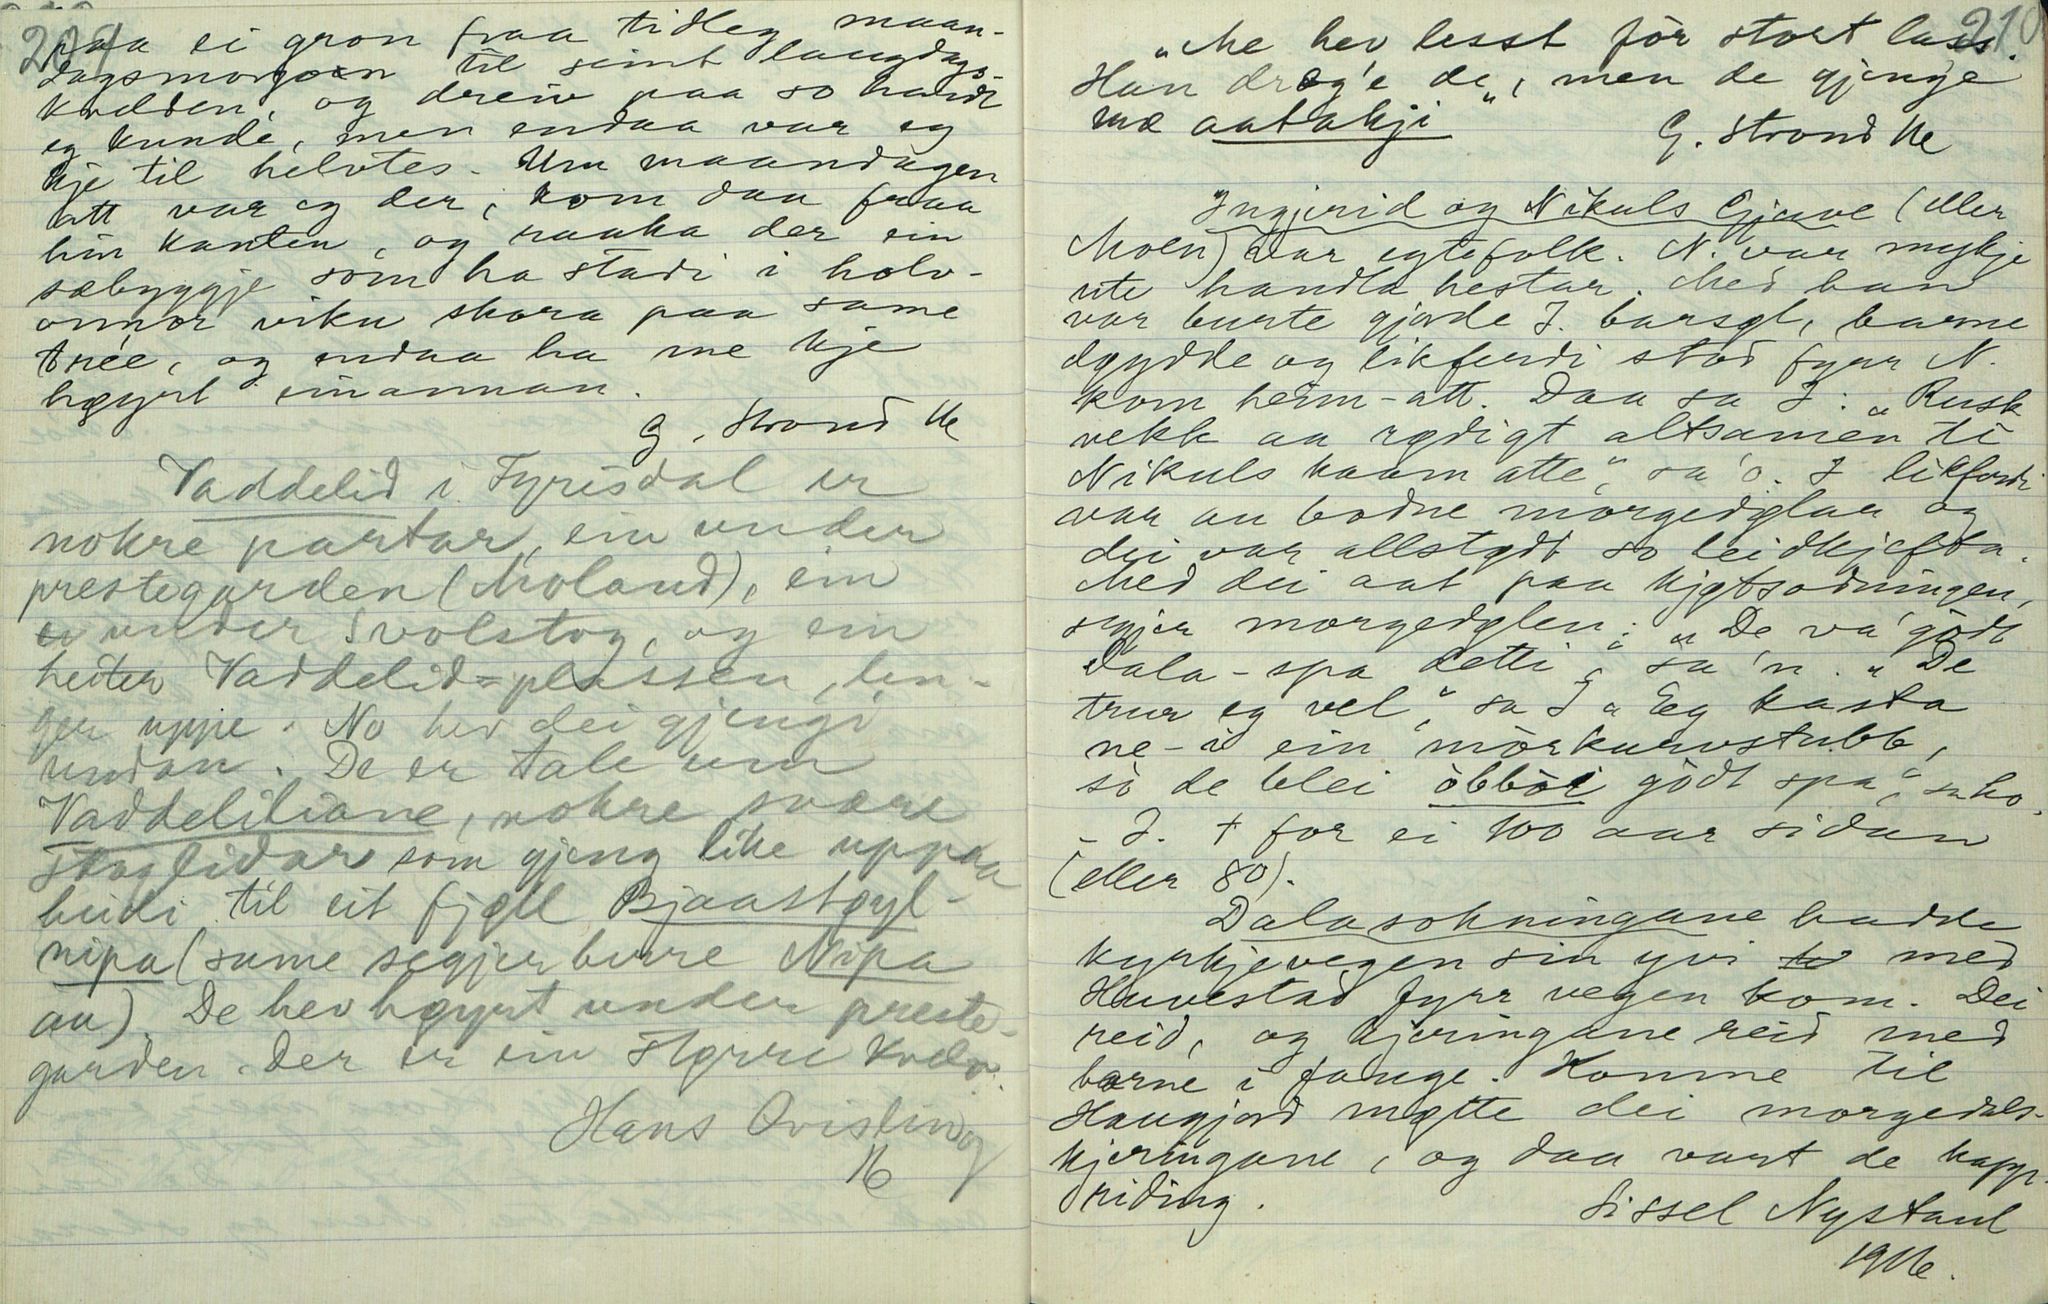 209
paa ei gron fraa tidleg maan-
dagsmorgoen til seint laugdags-
kvelden, og dreiv paa so hardt
eg kunde, men endaa var eg
kje til helvtes. Um maandagen
att var eg der, kom daa fraa
hin kanten, og raaka der ein
sæbyggje som ha stadi i holv-
onnor viku skora paa same
trée, og endaa ha me kje
høyrt einannan.
G. Strond 16
Vaddelid i Fyrisdal er
nokre partar, ein under
prestegarden (Moland), ein
under Svolstog, og ein
heiter Vaddelid-plassen, len-
ger uppe. No hev dei gjengi
undan. De er tale um
Vaddeliliane, nokre svære
skoglidar som gjeng like uppaa
heidi til eit fjøll Bjaastøyl-
nipa (sume segjer berre Nipa
au). De hev høyrt under preste-
garden. Der er ein større kvelv.
Hans Qvisling
16
210
"Me hev lesst för stort lass.
Han dreg'e de, men de gjenge
mæ aatakji"
G. Strond 16
Ingjerid og Nikuls Gjave (eller
Moen) var egtefolk. N. var mykje
ute handla hestar. Med han
var burte gjorde I. barsøl, barne
døydde og likferdi stod fyrr N.
kom heim-att. Daa sa I: "Rusk
vekk aa rødigt altsamen ti
Nikuls kaam atte", sa'o. I likferdi
var au bodne morgedølar og
dei var allstødt so leidkjefta.
Med dei aat paa kjøtsodningen,
segjer morgedølen: "De va' gödt
dala-spa detti", sa'n. "De
trur eg vel", sa I "Eg kasta
ne-i ein mörkurvstubb,
sö de blei öbböi gödt spa", sa ho.
- I. † for ei 100 aar sidan
(eller 80).
Dalasokningane hadde
kyrkjevegen sin yvi med
Huvestad fyrr vegen kom. Dei
reid, og kjeringane reid med
borne i fange. Komme til
Haugjord møtte dei morgedals-
kjeringane, og daa vart de kapp-
riding.
Sissel Nystaul
1916.